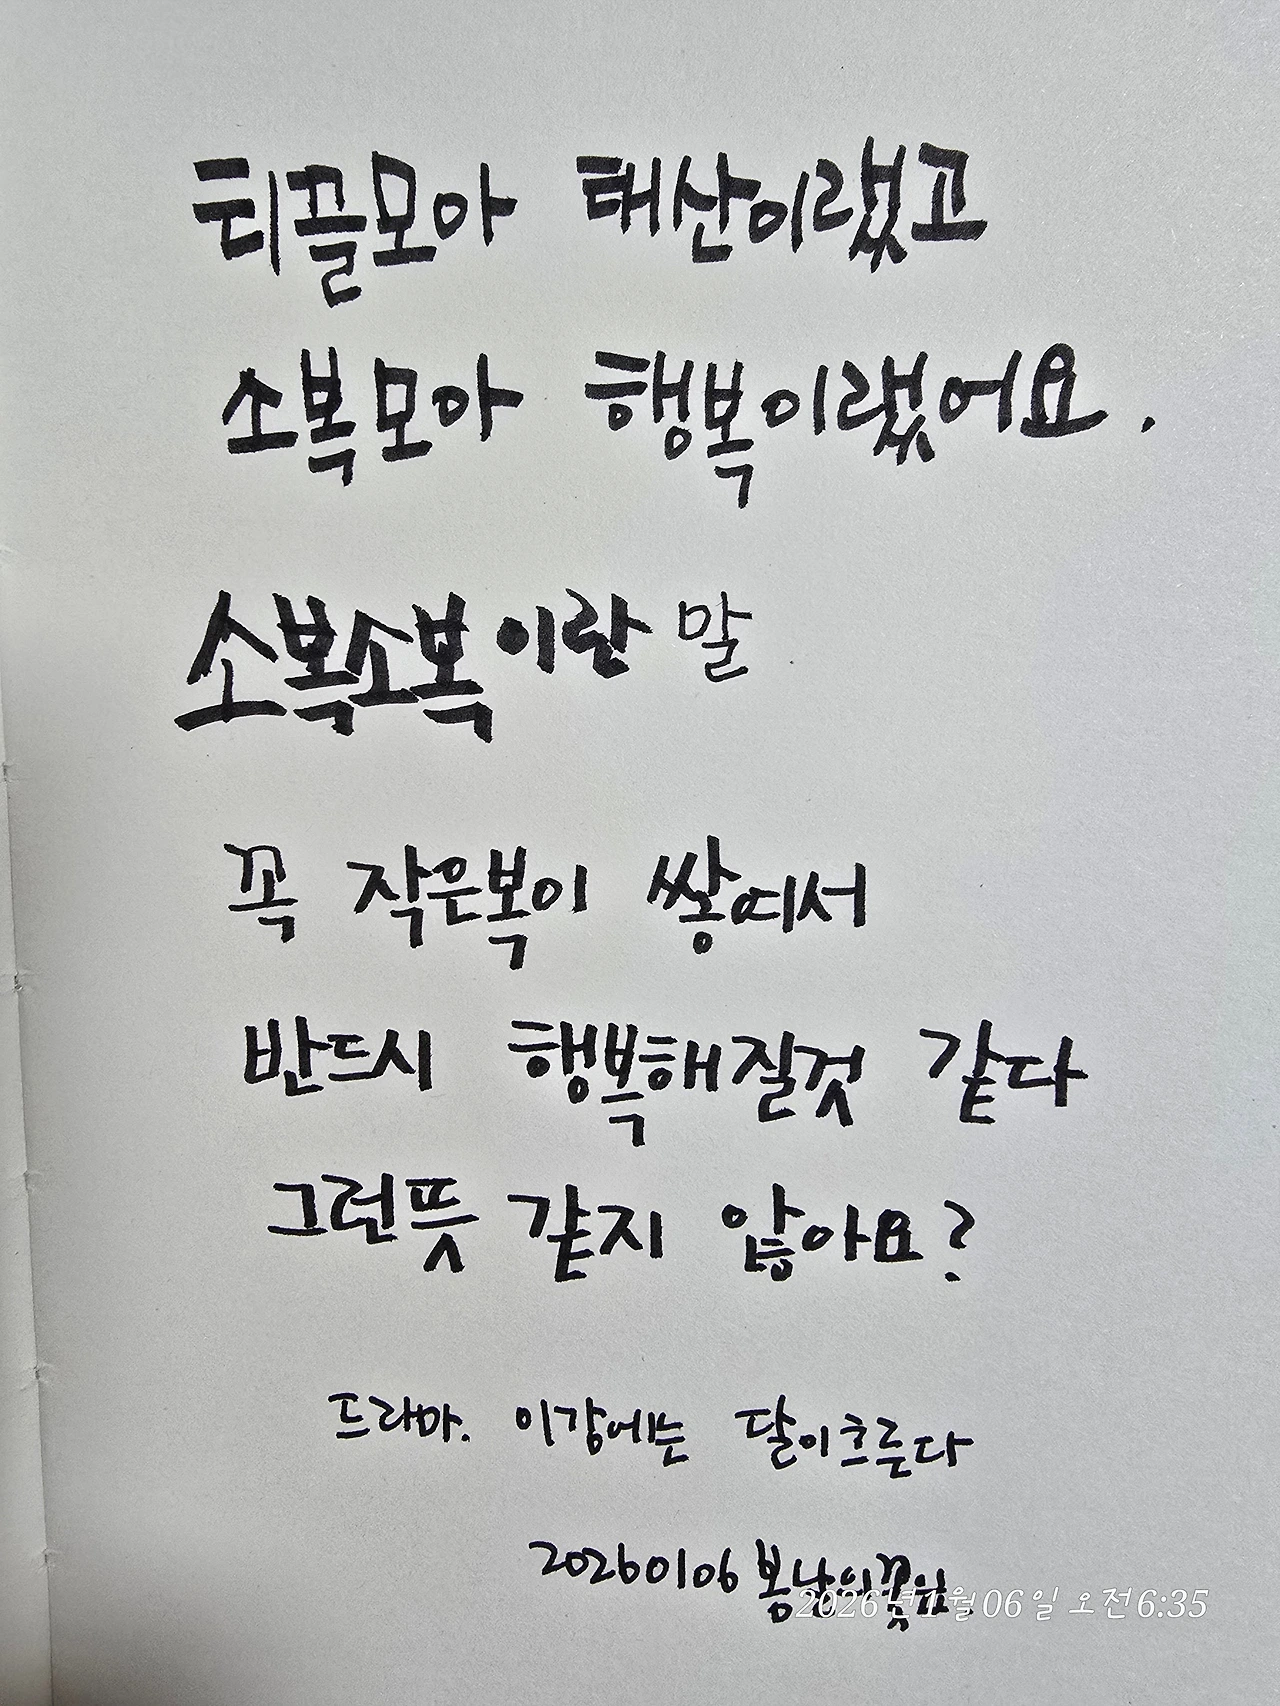 티끌모아 태산이랬고
소복모아 행복이랬어요.
소복소복이란 말
꼭 작은복이 쌓여서
반드시 행복해질것 같다
그런뜻 같지 않아요?
드라마. 이강에는 달이흐른다
20260106 봄날의꽃
2026년1월06일 오전6:35